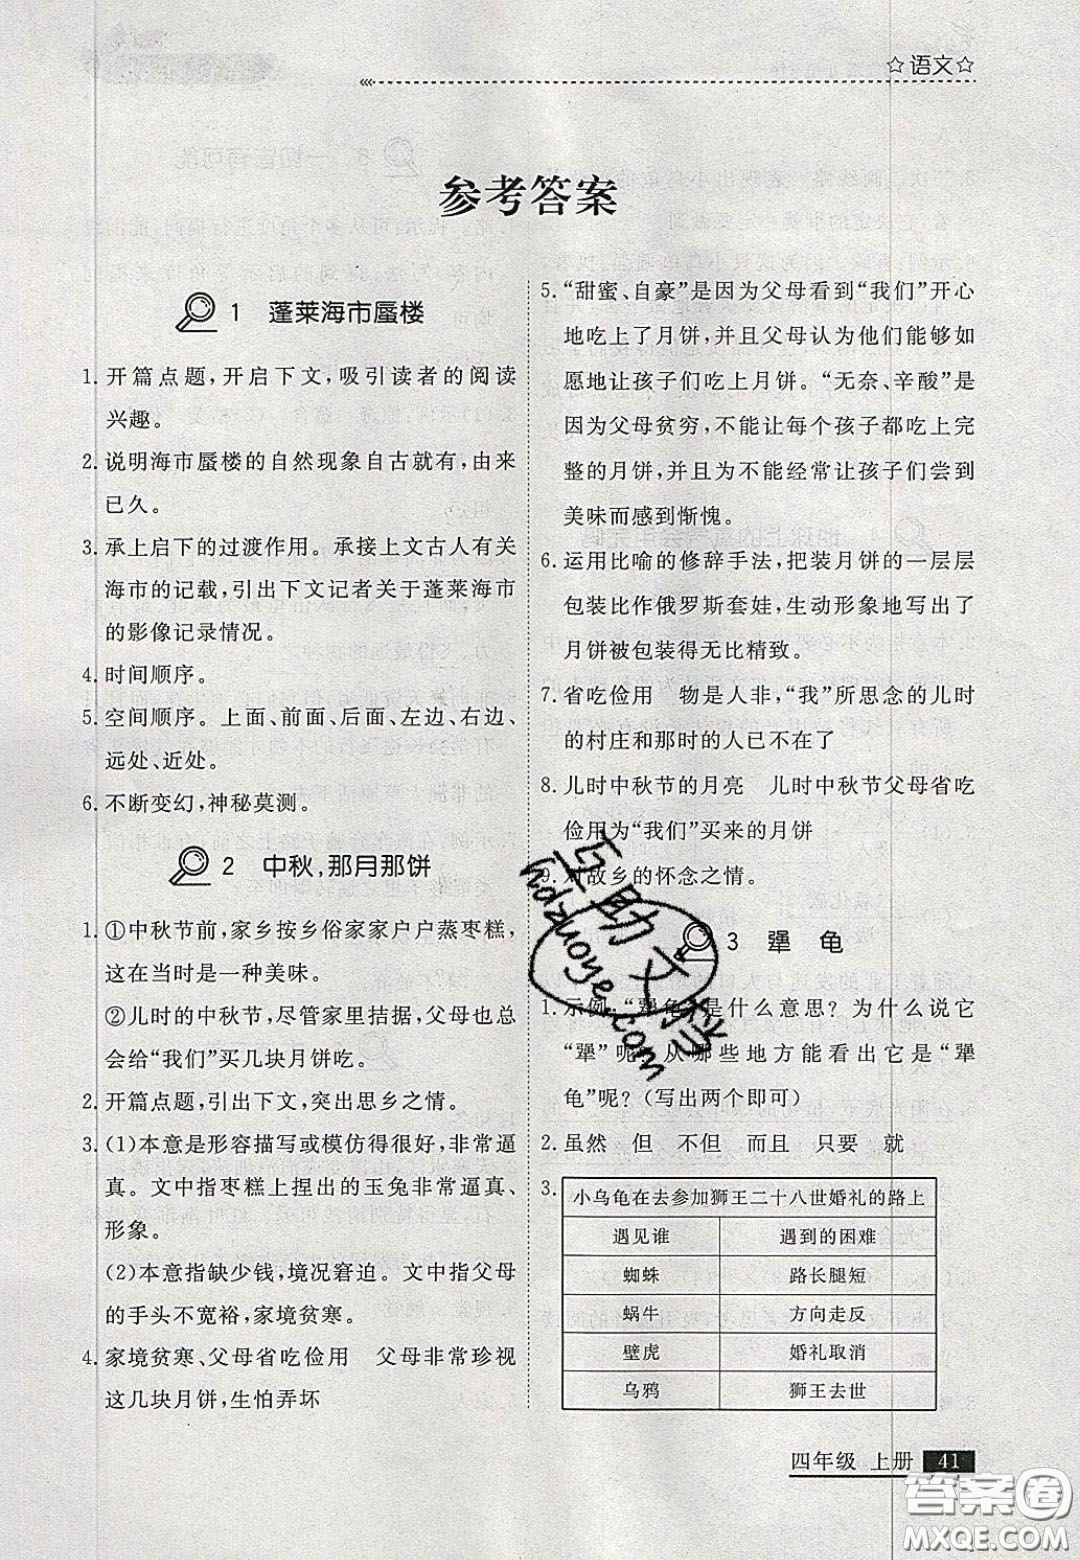 ☆语文☆
参考答案
1 蓬莱海市蜃楼
1. 开篇点题，开启下文，吸引读者的阅读
兴趣。
2. 说明海市蜃楼的自然现象自古就有，由来
已久。
3. 承上启下的过渡作用。承接上文古人有关
海市的记载，引出下文记者关于蓬莱海市
的影像记录情况。
4. 时间顺序。
5. 空间顺序。上面、前面、后面、左边、右边、
远处、近处。
6. 不断变幻，神秘莫测。
2 中秋，那月那饼
1. ①中秋节前，家乡按乡俗家家户户蒸枣糕，
这在当时是一种美味。
②儿时的中秋节，尽管家里拮据，父母也总
会给“我们”买几块月饼吃。
2. 开篇点题，引出下文，突出思乡之情。
3. (1)本意是形容描写或模仿得很好，非常逼
真。文中指枣糕上捏出的玉兔非常逼真、
形象。
(2)本意指缺少钱，境况窘迫。文中指父母
的手头不宽裕，家境贫寒。
4. 家境贫寒、父母省吃俭用 父母非常珍视
这几块月饼，生怕弄坏
5. “甜蜜、自豪”是因为父母看到“我们”开心
地吃上了月饼，并且父母认为他们能够如
愿地让孩子们吃上月饼。“无奈、辛酸”是
因为父母贫穷，不能让每个孩子都吃上完
整的月饼，并且不能经常让孩子们尝到
美味而感到惭愧。
6. 运用比喻的修辞手法，把装月饼的一层层
包装比作俄罗斯套娃，生动形象地写出了
月饼被包装得无比精致。
7. 省吃俭用 物是人非，“我”所思念的儿时
的村庄和那时的人已不在了
8. 儿时中秋节的月亮 儿时中秋节父母省吃
俭用为“我们”买来的月饼
9. 对故乡的怀念之情。
3 犟 龟
1. 示例：“犟龟”是什么意思？为什么说它
“犟”呢？从哪些地方能看出它是“犟
龟”呢？(写出两个即可)
2. 虽然 但 不但 而且 只要 就
3.
小乌龟在去参加狮王二十八世婚礼的路上
遇见谁 遇到的困难
蜘蛛 路长腿短
蜗牛 方向走反
壁虎 婚礼取消
乌鸦 狮王去世
互助文档
hdzuoye.com
四年级 上册 41
答案圈
MXQE.COM